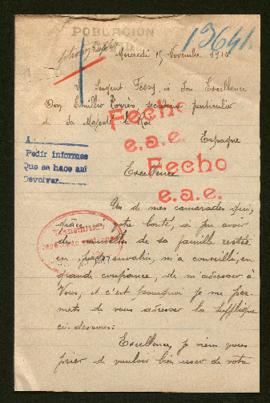 POBLACION
13641
Mercredi 15 Novembre 1916
Le Sergent Fessy, à Son Excellence
Don Emilio secrétaire particulier
de Sa Majesté le Roi
Espagne
Fecho
e.a.e.
A
Pedir informes
Que se hace así
Devolver
Fecho
e.a.e.
Excellence
Un de mes camarades qui,
grâce à votre bonté, a pu avoir
des nouvelles de sa famille restée
en pays envahi, m'a conseillé, en
grande confiance, de m'adresser à
Vous, et c'est pourquoi je me per-
mets de vous adresser la supplique
ci-dessous:
Excellence, je viens vous
prier de vouloir bien user de votre